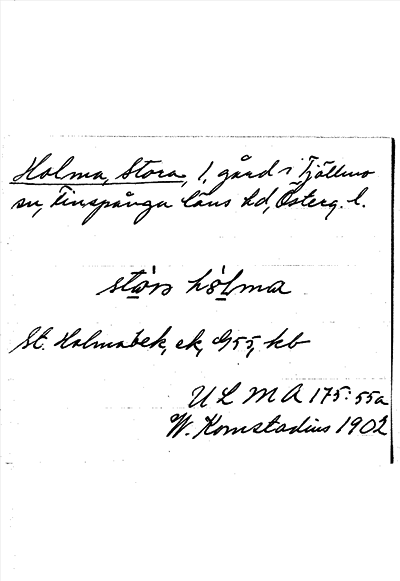 Holma, Stora, 1, gård i Tjällmo
sn, Finspånga läns hd, Österg. l.
stòra hòlma
St. Holma bek, ek, G55, kb
ULMA 175:55a
W. Komstadius 1902